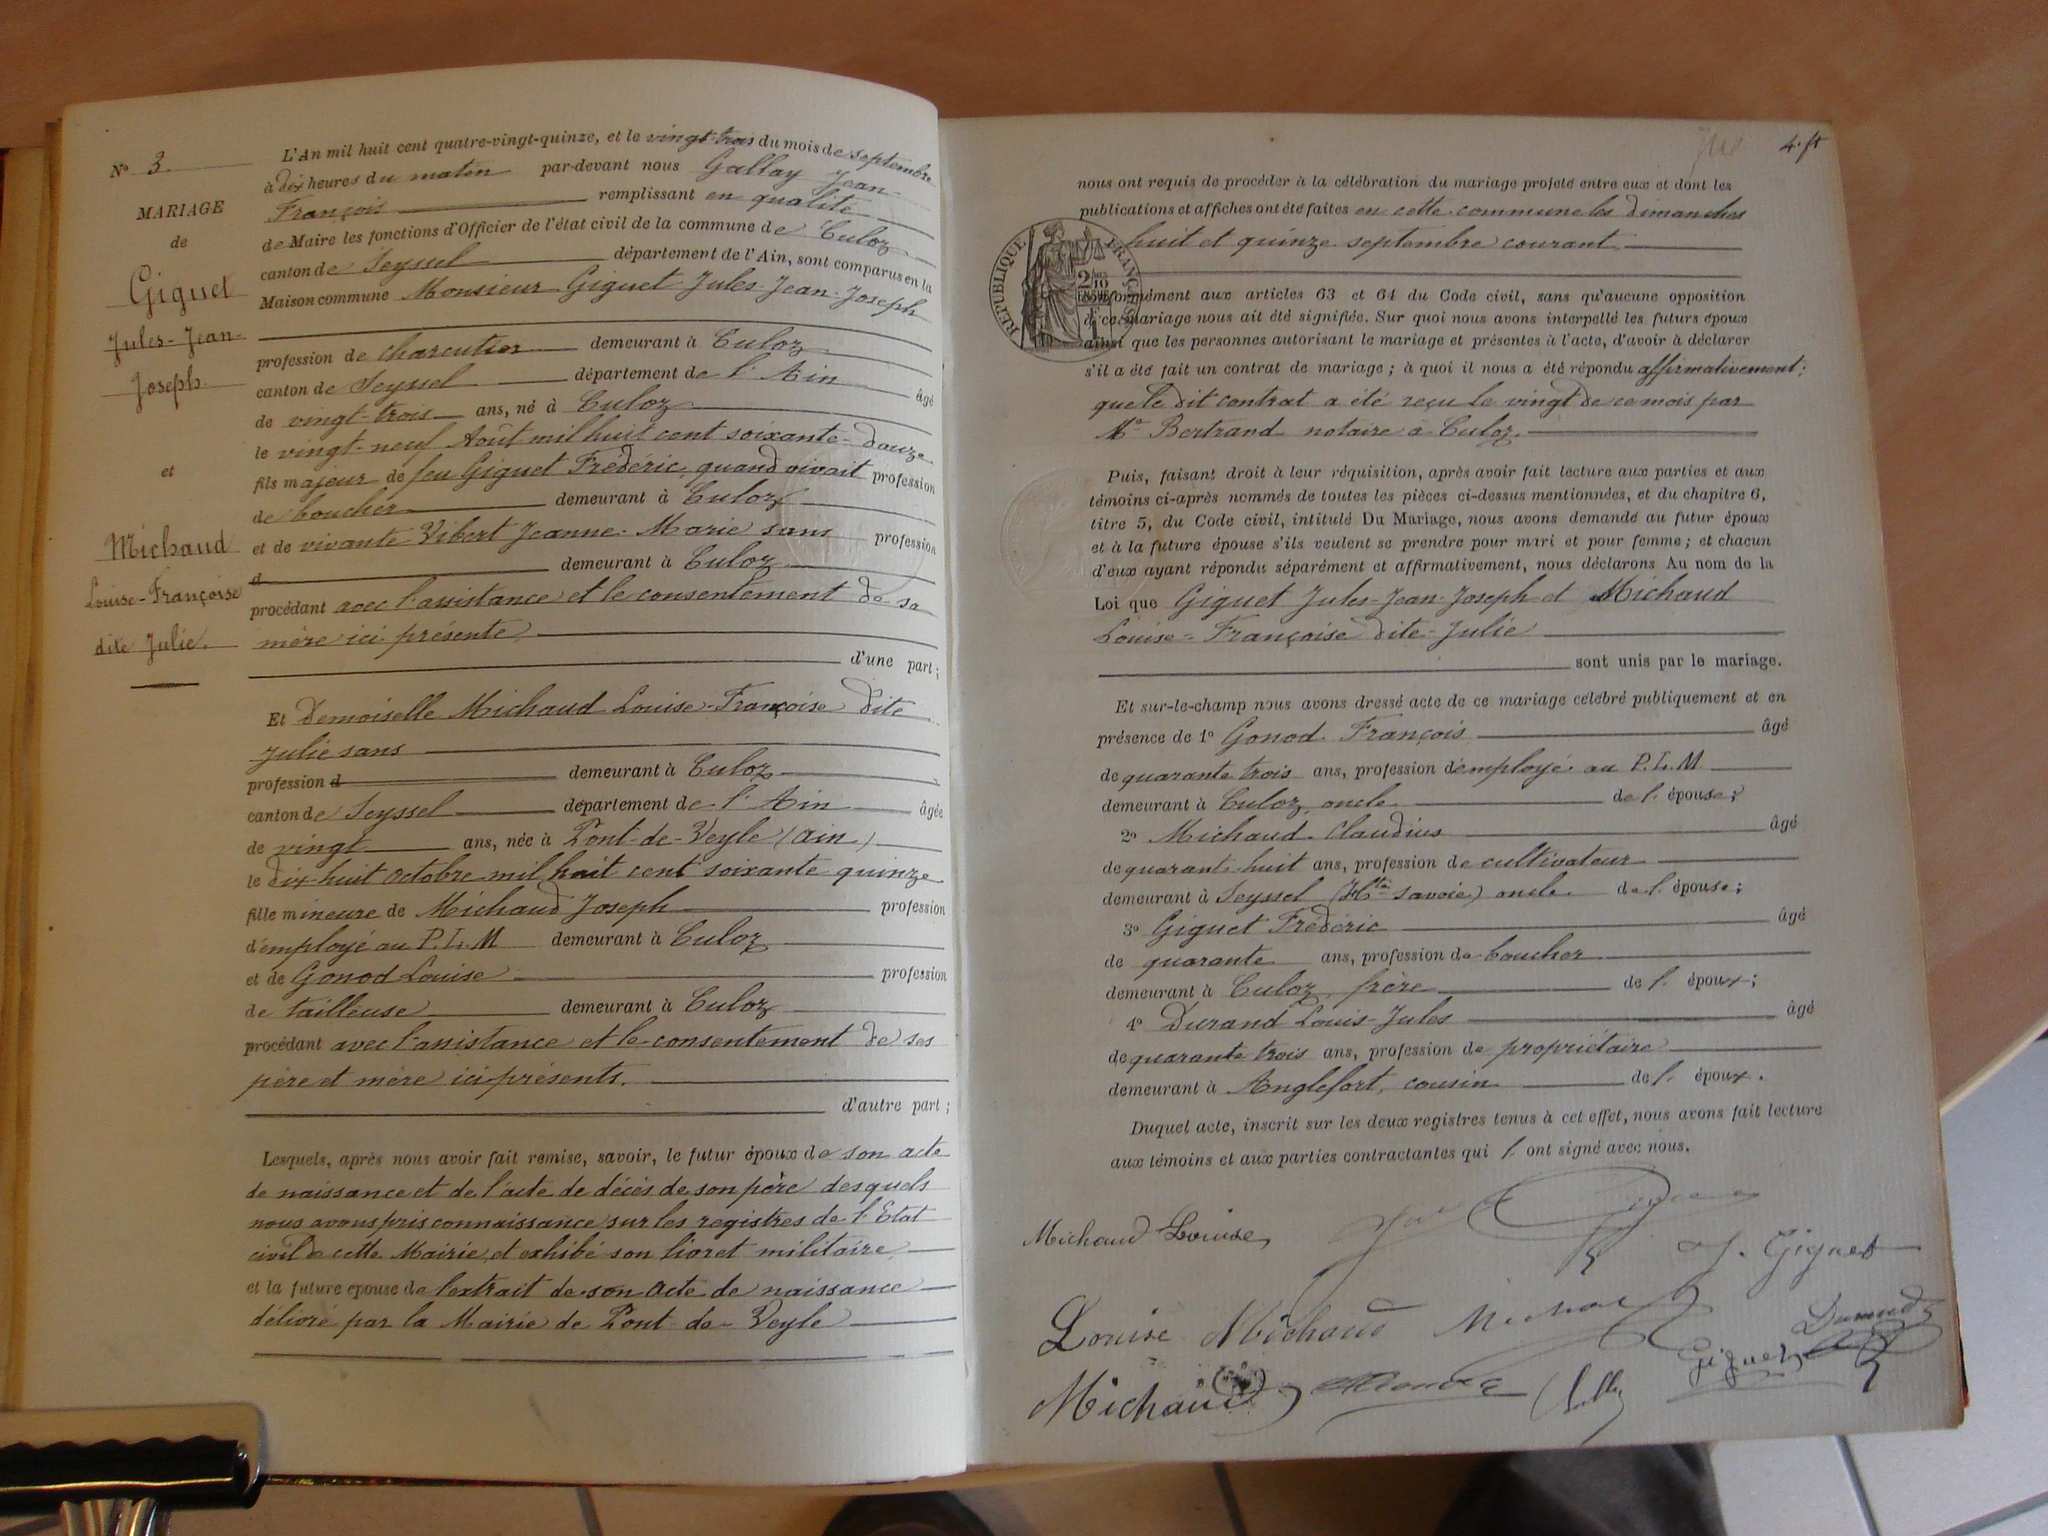 N° 3.
MARIAGE
de
Giguet
Jules-Jean-
Joseph.
et
Michaud
Louise-Françoise
dite Julie.
L'An mil huit cent quatre-vingt-quinze, et le vingt-trois du mois de septembre
à dix heures du matin par-devant nous Gallay Jean-
François remplissant en qualité
de Maire les fonctions d'Officier de l'état civil de la commune de Culoz
canton de Seyssel département de l'Ain, sont comparus en la
Maison commune Monsieur Giguet Jules-Jean-Joseph
profession de charcutier demeurant à Culoz
canton de Seyssel département de l'Ain âgé
de vingt-trois ans, né à Culoz
le vingt-neuf Août mil huit cent soixante-douze
fils majeur de feu Giguet Frédéric, quand vivait profession
de boucher demeurant à Culoz
et de vivante Vibert Jeanne-Marie sans profession
d demeurant à Culoz
procédant avec l'assistance et le consentement de sa
mère ici présente
d'une part;
Et Demoiselle Michaud Louise-Françoise dite
Julie sans
profession d demeurant à Culoz
canton de Seyssel département de l'Ain âgée
de vingt ans, née à Pont-de-Veyle (Ain)
le dix-huit octobre mil huit cent soixante quinze
fille mineure de Michaud Joseph profession
d'employé au P.L.M demeurant à Culoz
et de Gonod Louise profession
de tailleuse demeurant à Culoz
procédant avec l'assistance et le consentement de ses
père et mère ici présents.
d'autre part;
Lesquels, après nous avoir fait remise, savoir, le futur époux de son acte
de naissance et de l'acte de décès de son père desquels
nous avons pris connaissance sur les registres de l'Etat
civil de cette Mairie, et exhibé son livret militaire,
et la future épouse de l'extrait de son acte de naissance
délivré par la Mairie de Pont-de-Veyle
4. ft
nous ont requis de procéder à la célébration du mariage projeté entre eux et dont les
publications et affiches ont été faites en cette commune les dimanches
huit et quinze septembre courant
RÉPUBLIQUE FRANÇAISE
conformément aux articles 63 et 64 du Code civil, sans qu'aucune opposition
à ce mariage nous ait été signifiée. Sur quoi nous avons interpellé les futurs époux
ainsi que les personnes autorisant le mariage et présentes à l'acte, d'avoir à déclarer
s'il a été fait un contrat de mariage; à quoi il nous a été répondu affirmativement;
que le dit contrat a été reçu le vingt de ce mois par
Me Bertrand notaire à Culoz.
Puis, faisant droit à leur réquisition, après avoir fait lecture aux parties et aux
témoins ci-après nommés de toutes les pièces ci-dessus mentionnées, et du chapitre 6,
titre 5, du Code civil, intitulé Du Mariage, nous avons demandé au futur époux
et à la future épouse s'ils veulent se prendre pour mari et pour femme; et chacun
d'eux ayant répondu séparément et affirmativement, nous déclarons Au nom de la
Loi que Giguet Jules-Jean-Joseph et Michaud
Louise-Françoise dite Julie
sont unis par le mariage.
Et sur-le-champ nous avons dressé acte de ce mariage célébré publiquement et en
présence de 1° Gonod François âgé
de quarante trois ans, profession d'employé au P.L.M
demeurant à Culoz, oncle de l'épouse;
2° Michaud Claudius âgé
de quarante-huit ans, profession de cultivateur
demeurant à Seyssel (Hte Savoie) oncle de l'épouse;
3° Giguet Frédéric âgé
de quarante ans, profession de boucher
demeurant à Culoz, frère de l'époux;
4° Durand Louis-Jules âgé
de quarante trois ans, profession de propriétaire
demeurant à Anglefort, cousin de l'époux.
Duquel acte, inscrit sur les deux registres tenus à cet effet, nous avons fait lecture
aux témoins et aux parties contractantes qui l'ont signé avec nous.
Michaud Louise
J. Giguet
Louise Michaud
Durand
Giguet
Michaud